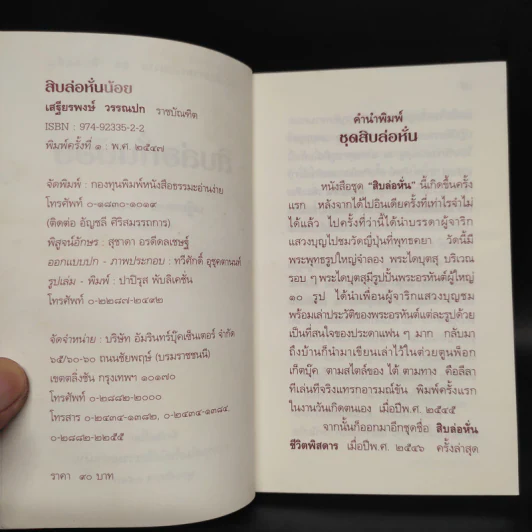 สิบล่อหั่นน้อย
เสฐียรพงษ์ วรรณปก ราชบัณฑิต
ISBN : 974-92335-2-2
พิมพ์ครั้งที่ ๑ : พ.ศ. ๒๕๔๗
จัดพิมพ์ : กองทุนพิมพ์หนังสือธรรมะอ่านง่าย
โทรศัพท์ ๐-๑๘๓๐-๑๐๑๙
(ติดต่อ อัญชลี ศิริสมรรถการ)
พิสูจน์อักษร : สุชาดา อรดีดลเชษฐ์
ออกแบบปก - ภาพประกอบ : ทวีศักดิ์ อุชุคตานนท์
รูปเล่ม - พิมพ์ : ปาปิรุส พับลิเคชั่น
โทรศัพท์ ๐-๒๒๘๗-๒๔๙๒
จัดจำหน่าย : บริษัท อัมรินทร์บุ๊คเซ็นเตอร์ จำกัด
๖๕/๖๐-๖๐ ถนนชัยพฤษ์ (บรมราชชนนี)
เขตตลิ่งชัน กรุงเทพฯ ๑๐๑๗๐
โทรศัพท์ ๐-๒๘๘๒-๒๐๐๐
โทรสาร ๐-๒๔๓๔-๑๓๘๒, ๐-๒๔๓๔-๑๓๘๔
๐-๒๘๘๒-๒๒๕๕
ราคา ๙๐ บาท
คำนำพิมพ์
ชุดสิบล่อหั่น
หนังสือชุด "สิบล่อหั่น" นี้เกิดขึ้นครั้ง
แรก หลังจากได้ไปอินเดียครั้งที่เท่าไรจำไม่
ได้แล้ว ไปครั้งที่ว่านี้ได้นำบรรดาผู้จาริก
แสวงบุญไปชมวัดญี่ปุ่นที่พุทธคยา วัดนี้มี
พระพุทธรูปใหญ่จำลอง พระไดบุตสุ บริเวณ
รอบ ๆ พระไดบุตสุมีรูปปั้นพระอรหันต์ผู้ใหญ่
๑๐ รูป ได้นำเพื่อนผู้จาริกแสวงบุญชม
พร้อมเล่าประวัติของพระอรหันต์แต่ละรูปด้วย
เป็นที่สนใจของประดาแฟน ๆ มาก กลับมา
ถึงบ้านก็นำมาเขียนเล่าไว้ในต่วยตูนพ็อก
เก็ตบุ๊ค ตามสไตล์ของ ไต้ ตามทาง คือลีลา
ที่เล่นทีจริงแทรกอารมณ์ขัน พิมพ์ครั้งแรก
ในงานวันเกิดตนเอง เมื่อปีพ.ศ. ๒๕๔๕
จากนั้นก็ออกมาอีกชุดชื่อ สิบล่อหั่น
ชีวิตพิสดาร เมื่อปีพ.ศ. ๒๕๔๖ ครั้งล่าสุด